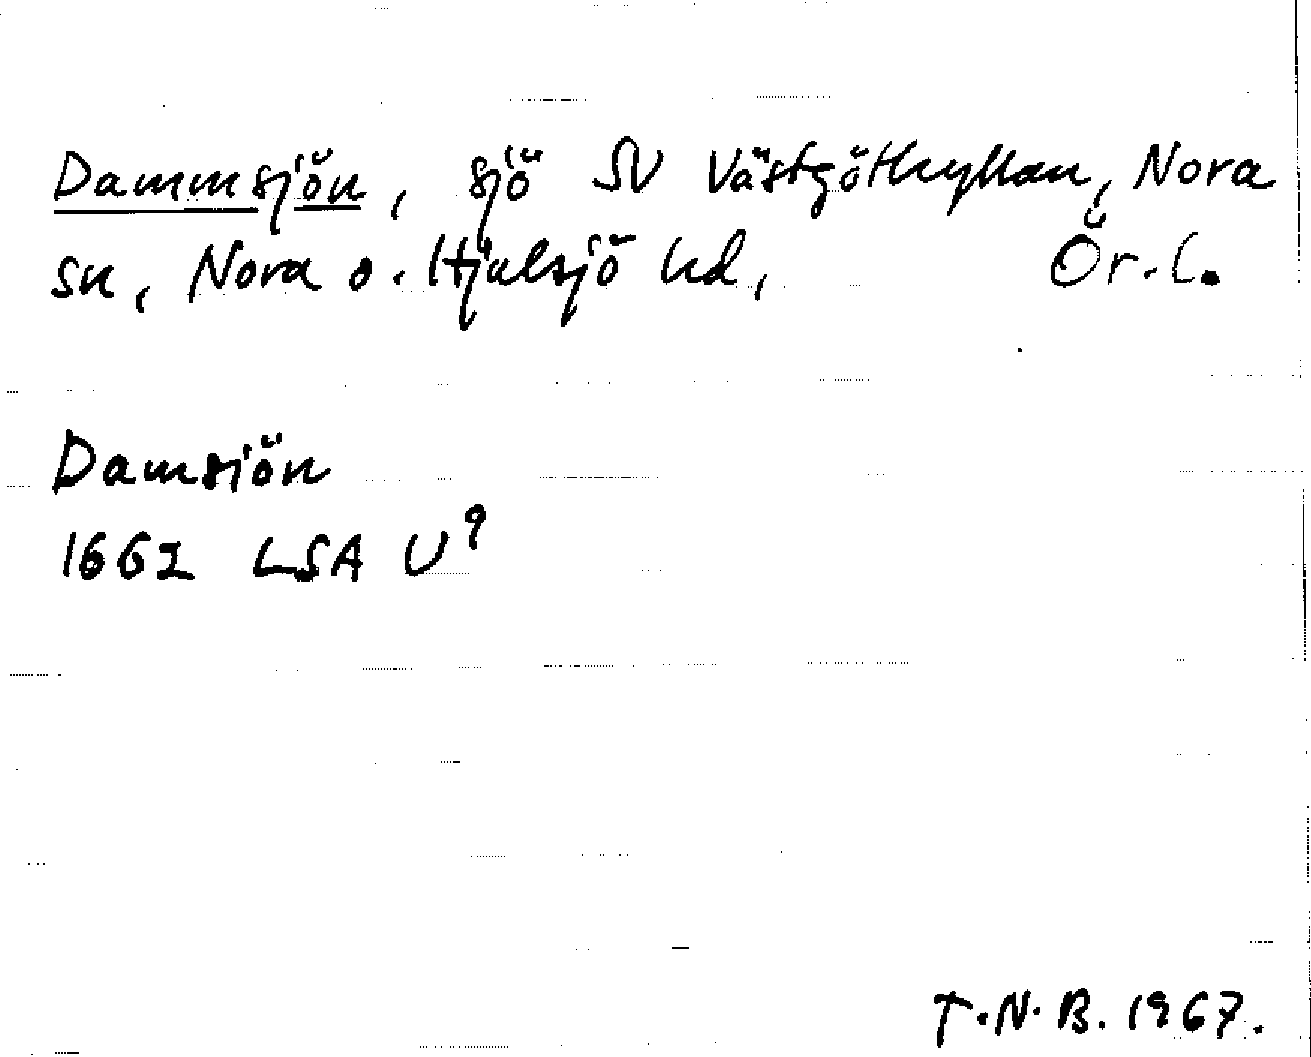 Dammsjön, sjö SV Västgöthyttan, Nora
sn, Nora o. Hjulsjö hd, Ör.l.
Damsiön
1661 LSA U⁹
T.N.B. 1967.